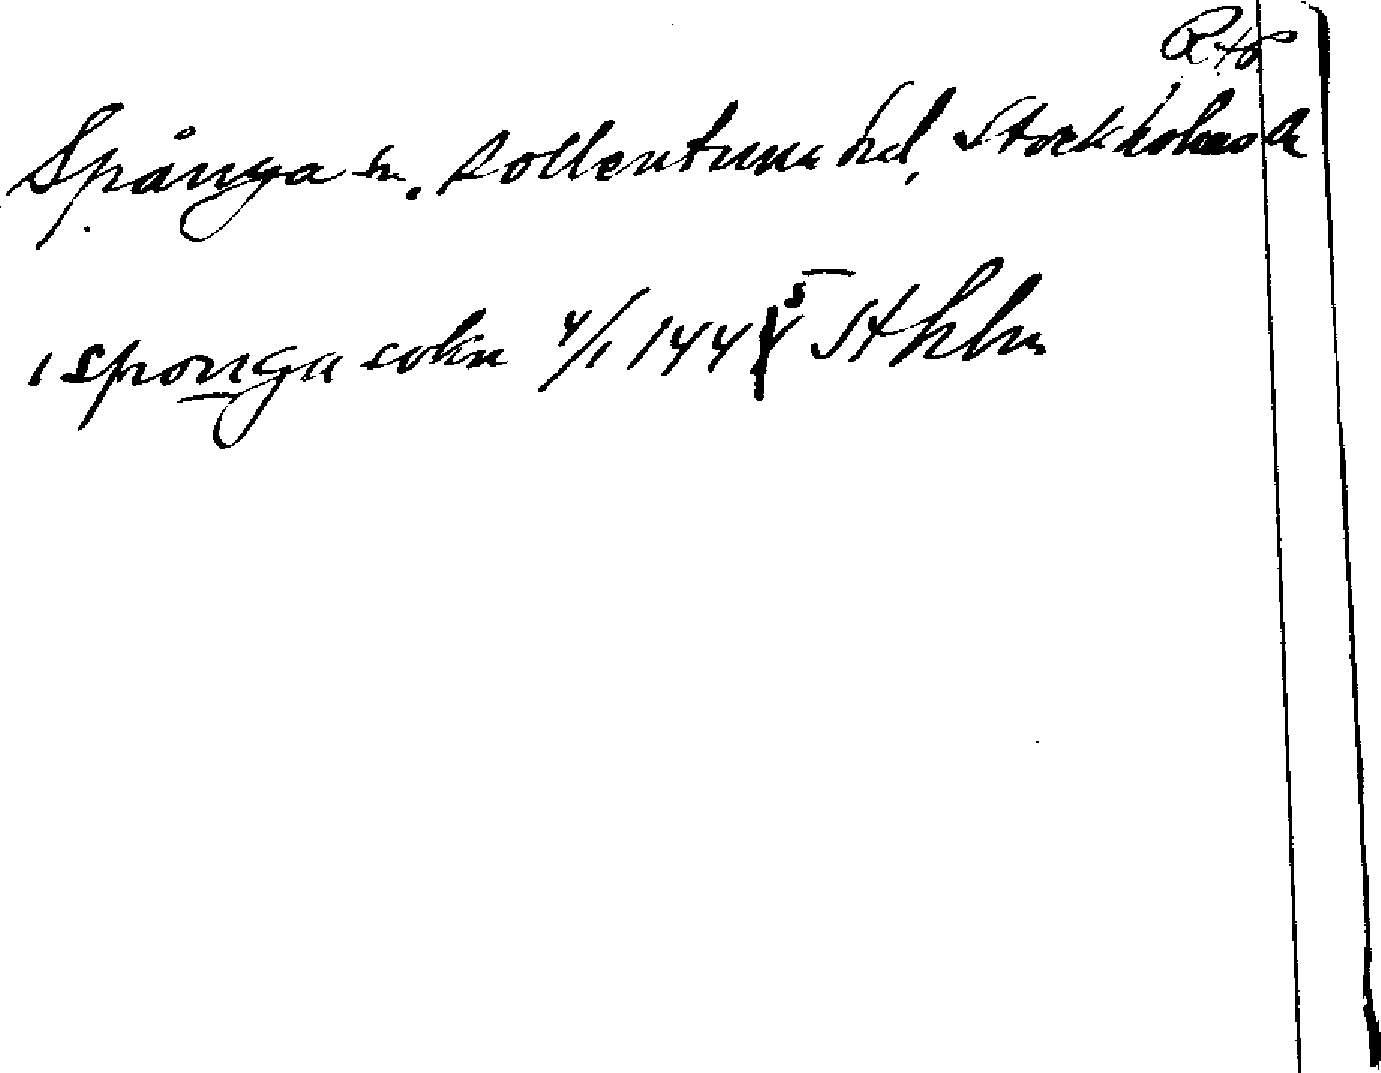 Spånga sn. Sollentuna hd, Stockholms l
i sponga sokn 4/1 1445 Sthlm